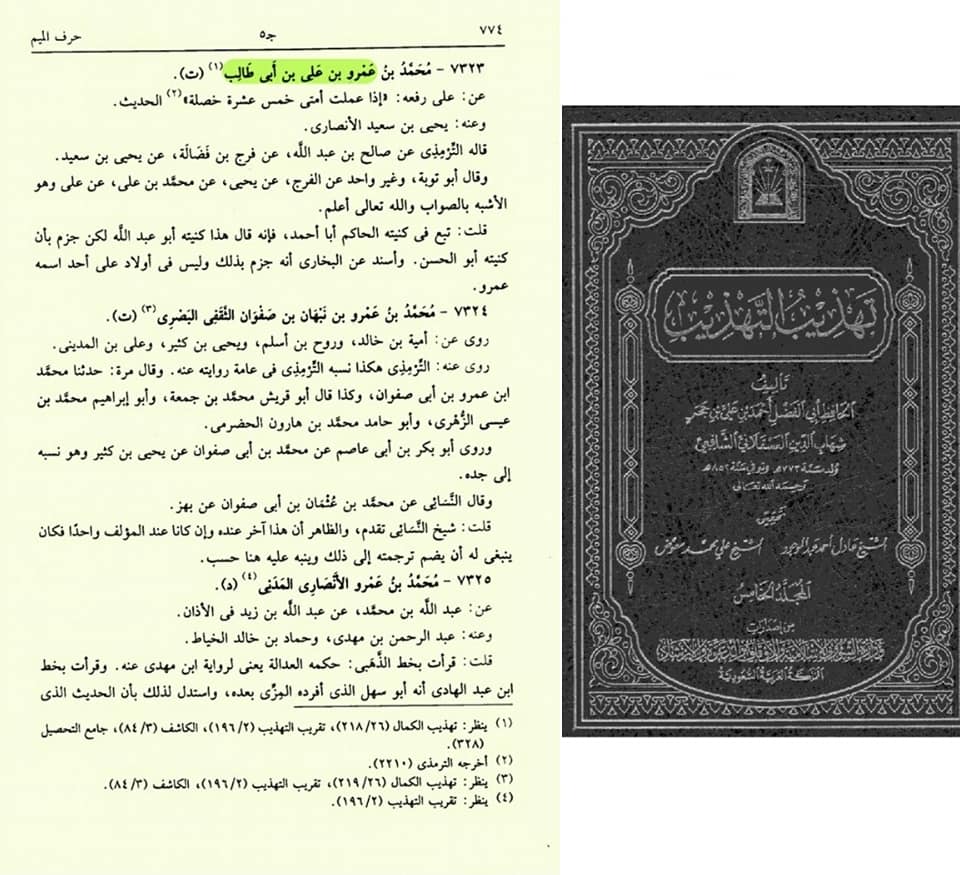 ٧٧٤
جـ٥
حرف الميم
٧٣٢٣ - مُحَمَّدُ بنُ عَمْرو بن عَلى بن أَبى طَالِب(١) (ت).
عن: على رفعه: «إذا عملت أمتى خمس عشرة خصلة»(٢) الحديث.
وعنه: يحيى بن سعيد الأنصارى.
قاله التِّرْمِذِى عن صالح بن عبد اللَّه، عن فرج بن فَضَالَة، عن يحيى بن سعيد.
وقال أبو توبة، وغير واحد عن الفرج، عن يحيى، عن محمَّد بن على، عن على وهو
الأشبه بالصواب والله تعالى أعلم.
قلت: تبع فى كنيته الحاكم أبا أحمد، فإنه قال هذا كنيته أبو عبد اللَّه لكن جزم بأن
كنيته أبو الحسن. وأسند عن البخارى أنه جزم بذلك وليس فى أولاد على أحد اسمه
عمرو.
٧٣٢٤ - مُحَمَّدُ بنُ عَمْرو بن نَبْهَان بن صَفْوَان الثَّقَفِى البَصْرِى(٣) (ت).
روى عن: أمية بن خالد، وروح بن أسلم، ويحيى بن كثير، وعلى بن المدينى.
روى عنه: التِّرْمِذِى هكذا نسبه التِّرْمِذِى فى عامة روايته عنه. وقال مرة: حدثنا محمَّد
ابن عمرو بن أبى صفوان، وكذا قال أبو قريش محمَّد بن جمعة، وأبو إبراهيم محمَّد بن
عيسى الزُّهْرى، وأبو حامد محمَّد بن هارون الحضرمى.
وروى أبو بكر بن أبى عاصم عن محمَّد بن أبى صفوان عن يحيى بن كثير وهو نسبه
إلى جده.
وقال النَّسَائِى عن محمَّد بن عُثْمَان بن أبى صفوان عن بهز.
قلت: شيخ النَّسَائِى تقدم، والظاهر أن هذا آخر عنده وإن كانا عند المؤلف واحدًا فكان
ينبغى له أن يضم ترجمته إلى ذلك وينبه عليه هنا حسب.
٧٣٢٥ - مُحَمَّدُ بنُ عَمْرو الأَنْصَارِى المَدَنِى(٤) (د).
عن: عبد اللَّه بن محمَّد، عن عبد اللَّه بن زيد فى الأذان.
وعنه: عبد الرحمن بن مهدى، وحماد بن خالد الخياط.
قلت: قرأت بخط الذَّهَبى: حكمه العدالة يعنى لرواية ابن مهدى عنه. وقرأت بخط
ابن عبد الهادى أنه أبو سهل الذى أفرده المِزِّى بعده، واستدل لذلك بأن الحديث الذى
(١) ينظر: تهذيب الكمال (٢١٨/٢٦)، تقريب التهذيب (١٩٦/٢)، الكاشف (٨٤/٣)، جامع التحصيل
(٣٢٨).
(٢) أخرجه الترمذى (٢٢١٠).
(٣) ينظر: تهذيب الكمال (٢١٩/٢٦)، تقريب التهذيب (١٩٦/٢)، الكاشف (٨٤/٣).
(٤) ينظر: تقريب التهذيب (١٩٦/٢).
تهذيب التهذيب
تأليف
الحافظ أبي الفضل أحمد بن علي بن حجر
شهاب الدين العسقلاني الشافعي
ولد سنة ٧٧٣هـ وتوفي سنة ٨٥٢هـ
رحمه الله تعالى
تحقيق
الشيخ عادل أحمد عبد الموجود الشيخ علي محمد معوض
المجلد الخامس
من إصدارات
وزارة الشؤون الإسلامية والأوقاف والدعوة والإرشاد
المملكة العربية السعودية